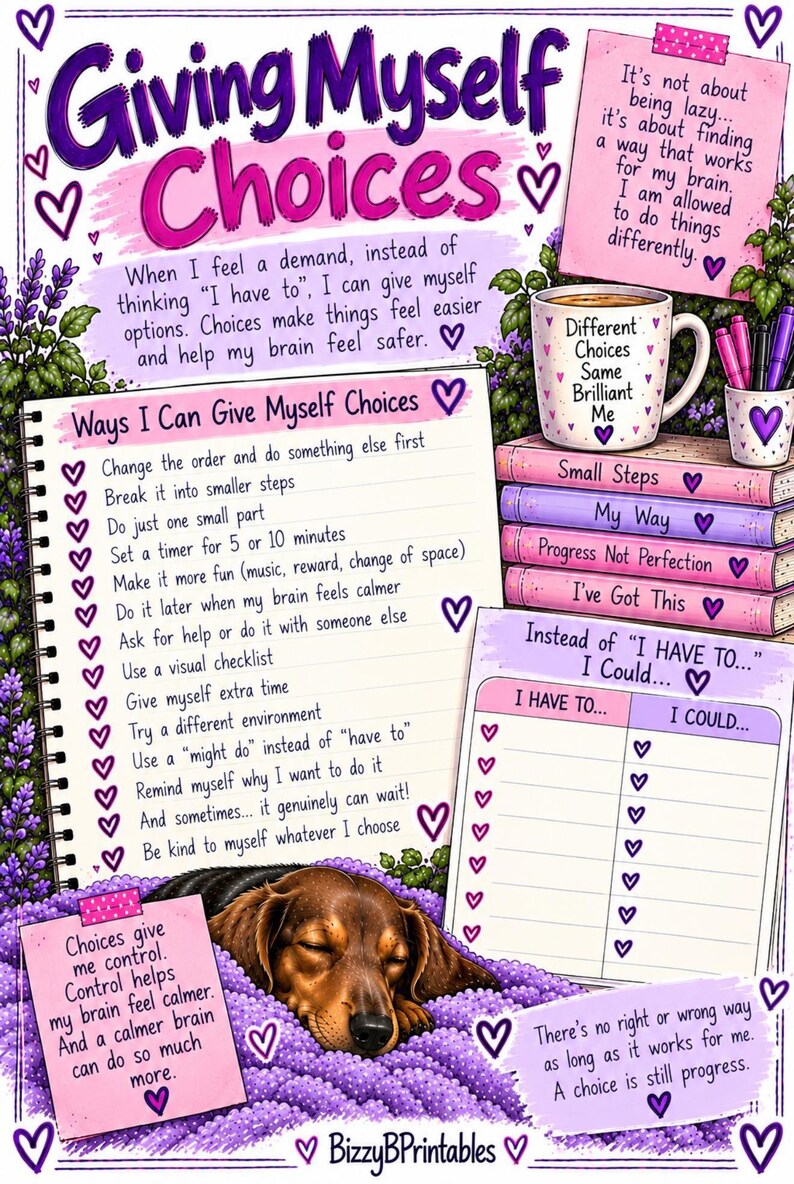 Giving Myself
Choices
It's not about
being lazy...
it's about finding
a way that works
for my brain.
I am allowed
to do things
differently.
When I feel a demand, instead of
thinking "I have to", I can give myself
options. Choices make things feel easier
and help my brain feel safer.
Different
Choices
Same
Brilliant
Me
Small Steps
My Way
Progress Not Perfection
I've Got This
Ways I Can Give Myself Choices
Change the order and do something else first
Break it into smaller steps
Do just one small part
Set a timer for 5 or 10 minutes
Make it more fun (music, reward, change of space)
Do it later when my brain feels calmer
Ask for help or do it with someone else
Use a visual checklist
Give myself extra time
Try a different environment
Use a "might do" instead of "have to"
Remind myself why I want to do it
And sometimes... it genuinely can wait!
Be kind to myself whatever I choose
Instead of "I HAVE TO..."
I Could...
I HAVE TO... I COULD...
Choices give
me control.
Control helps
my brain feel calmer.
And a calmer brain
can do so much
more.
There's no right or wrong way
as long as it works for me.
A choice is still progress.
BizzyBPrintables